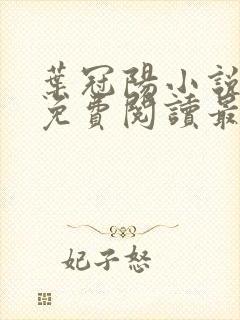 葉冠陽小說
免費閱讀最
妃子怒